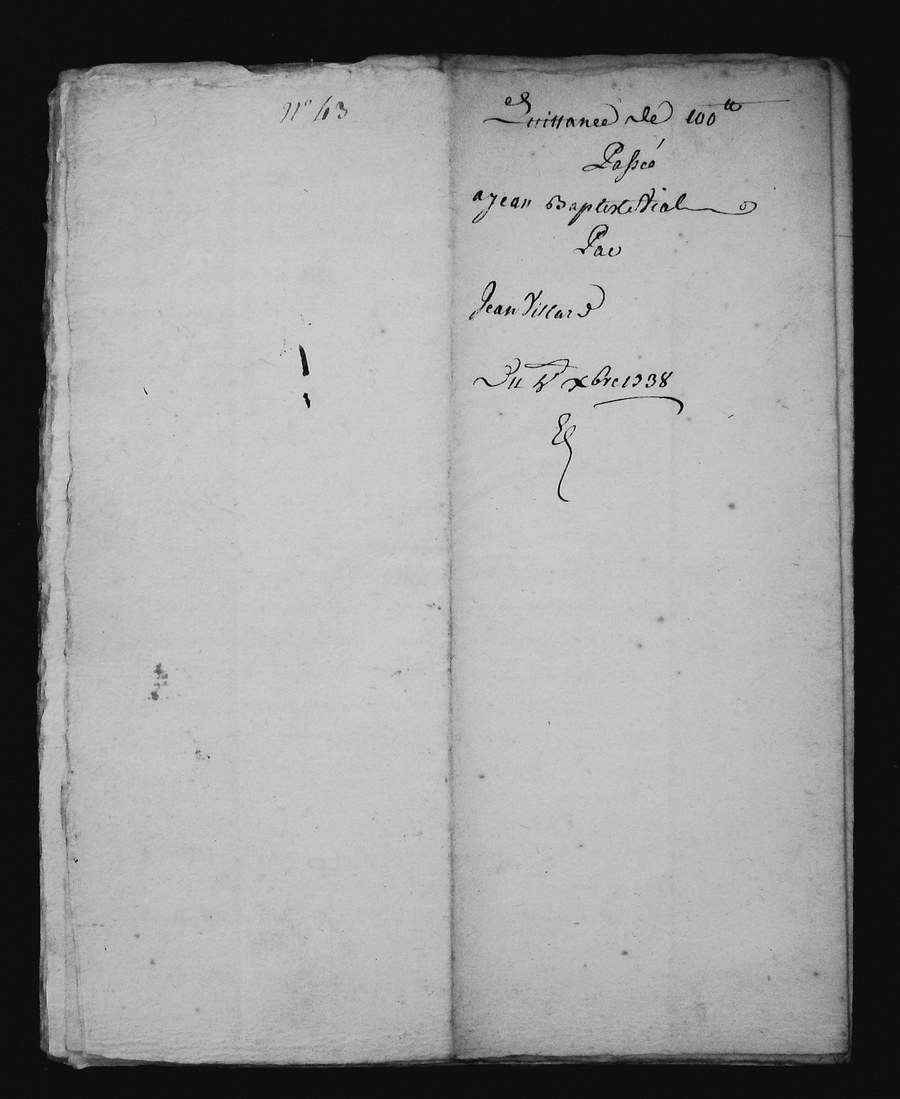 N° 43
Quittance de 100ᵗᵗ
Passé
a Jean Baptiste Vial
Par
Jean Villard
Du 4ᵉ xbre 1738